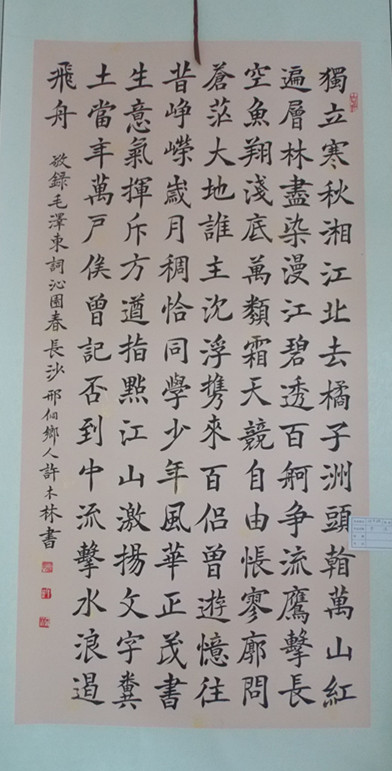 獨立寒秋湘江北去橘子洲頭看萬山紅
遍層林盡染漫江碧透百舸争流鷹擊長
空魚翔淺底萬類霜天競自由悵寥廓問
蒼茫大地誰主沈浮携來百侶曾遊憶往
昔崢嶸歲月稠恰同學少年風華正茂書
生意氣揮斥方遒指點江山激揚文字糞
土當年萬戶侯曾記否到中流擊水浪遏
飛舟
敬録毛澤東詞沁園春長沙 邢佃鄉人許木林書